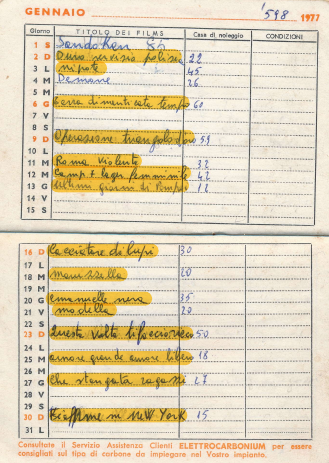 GENNAIO '598 1977
Giorno TITOLO DEI FILMS Casa di noleggio CONDIZIONI
1 S Sandokan
2 D Duro servizio polizia 22
3 L nipote 45
4 M 26
5 M
6 G Terra dimenticata tempo 60
7 V
8 S
9 D Operazione triangolo d'oro 59
10 L
11 M Roma violenta 32
12 M Camp. 7 lager femminile 42
13 G ultimi giorni di Pompei 12
14 V
15 S
16 D Cacciatore di lupi 30
17 L
18 M 20
19 M
20 G emanuelle nera 35
21 V modella 20
22 S
23 D questa volta ti faccio ricco 50
24 L
25 M amore grande amore libero 18
26 M
27 G Che stangata ragazzi 27
28 V
29 S
30 D in NEW YORK 15
31 L
Consultate il Servizio Assistenza Clienti ELETTROCARBONIUM per essere
consigliati sul tipo di carbone da impiegare nel Vostro impianto.